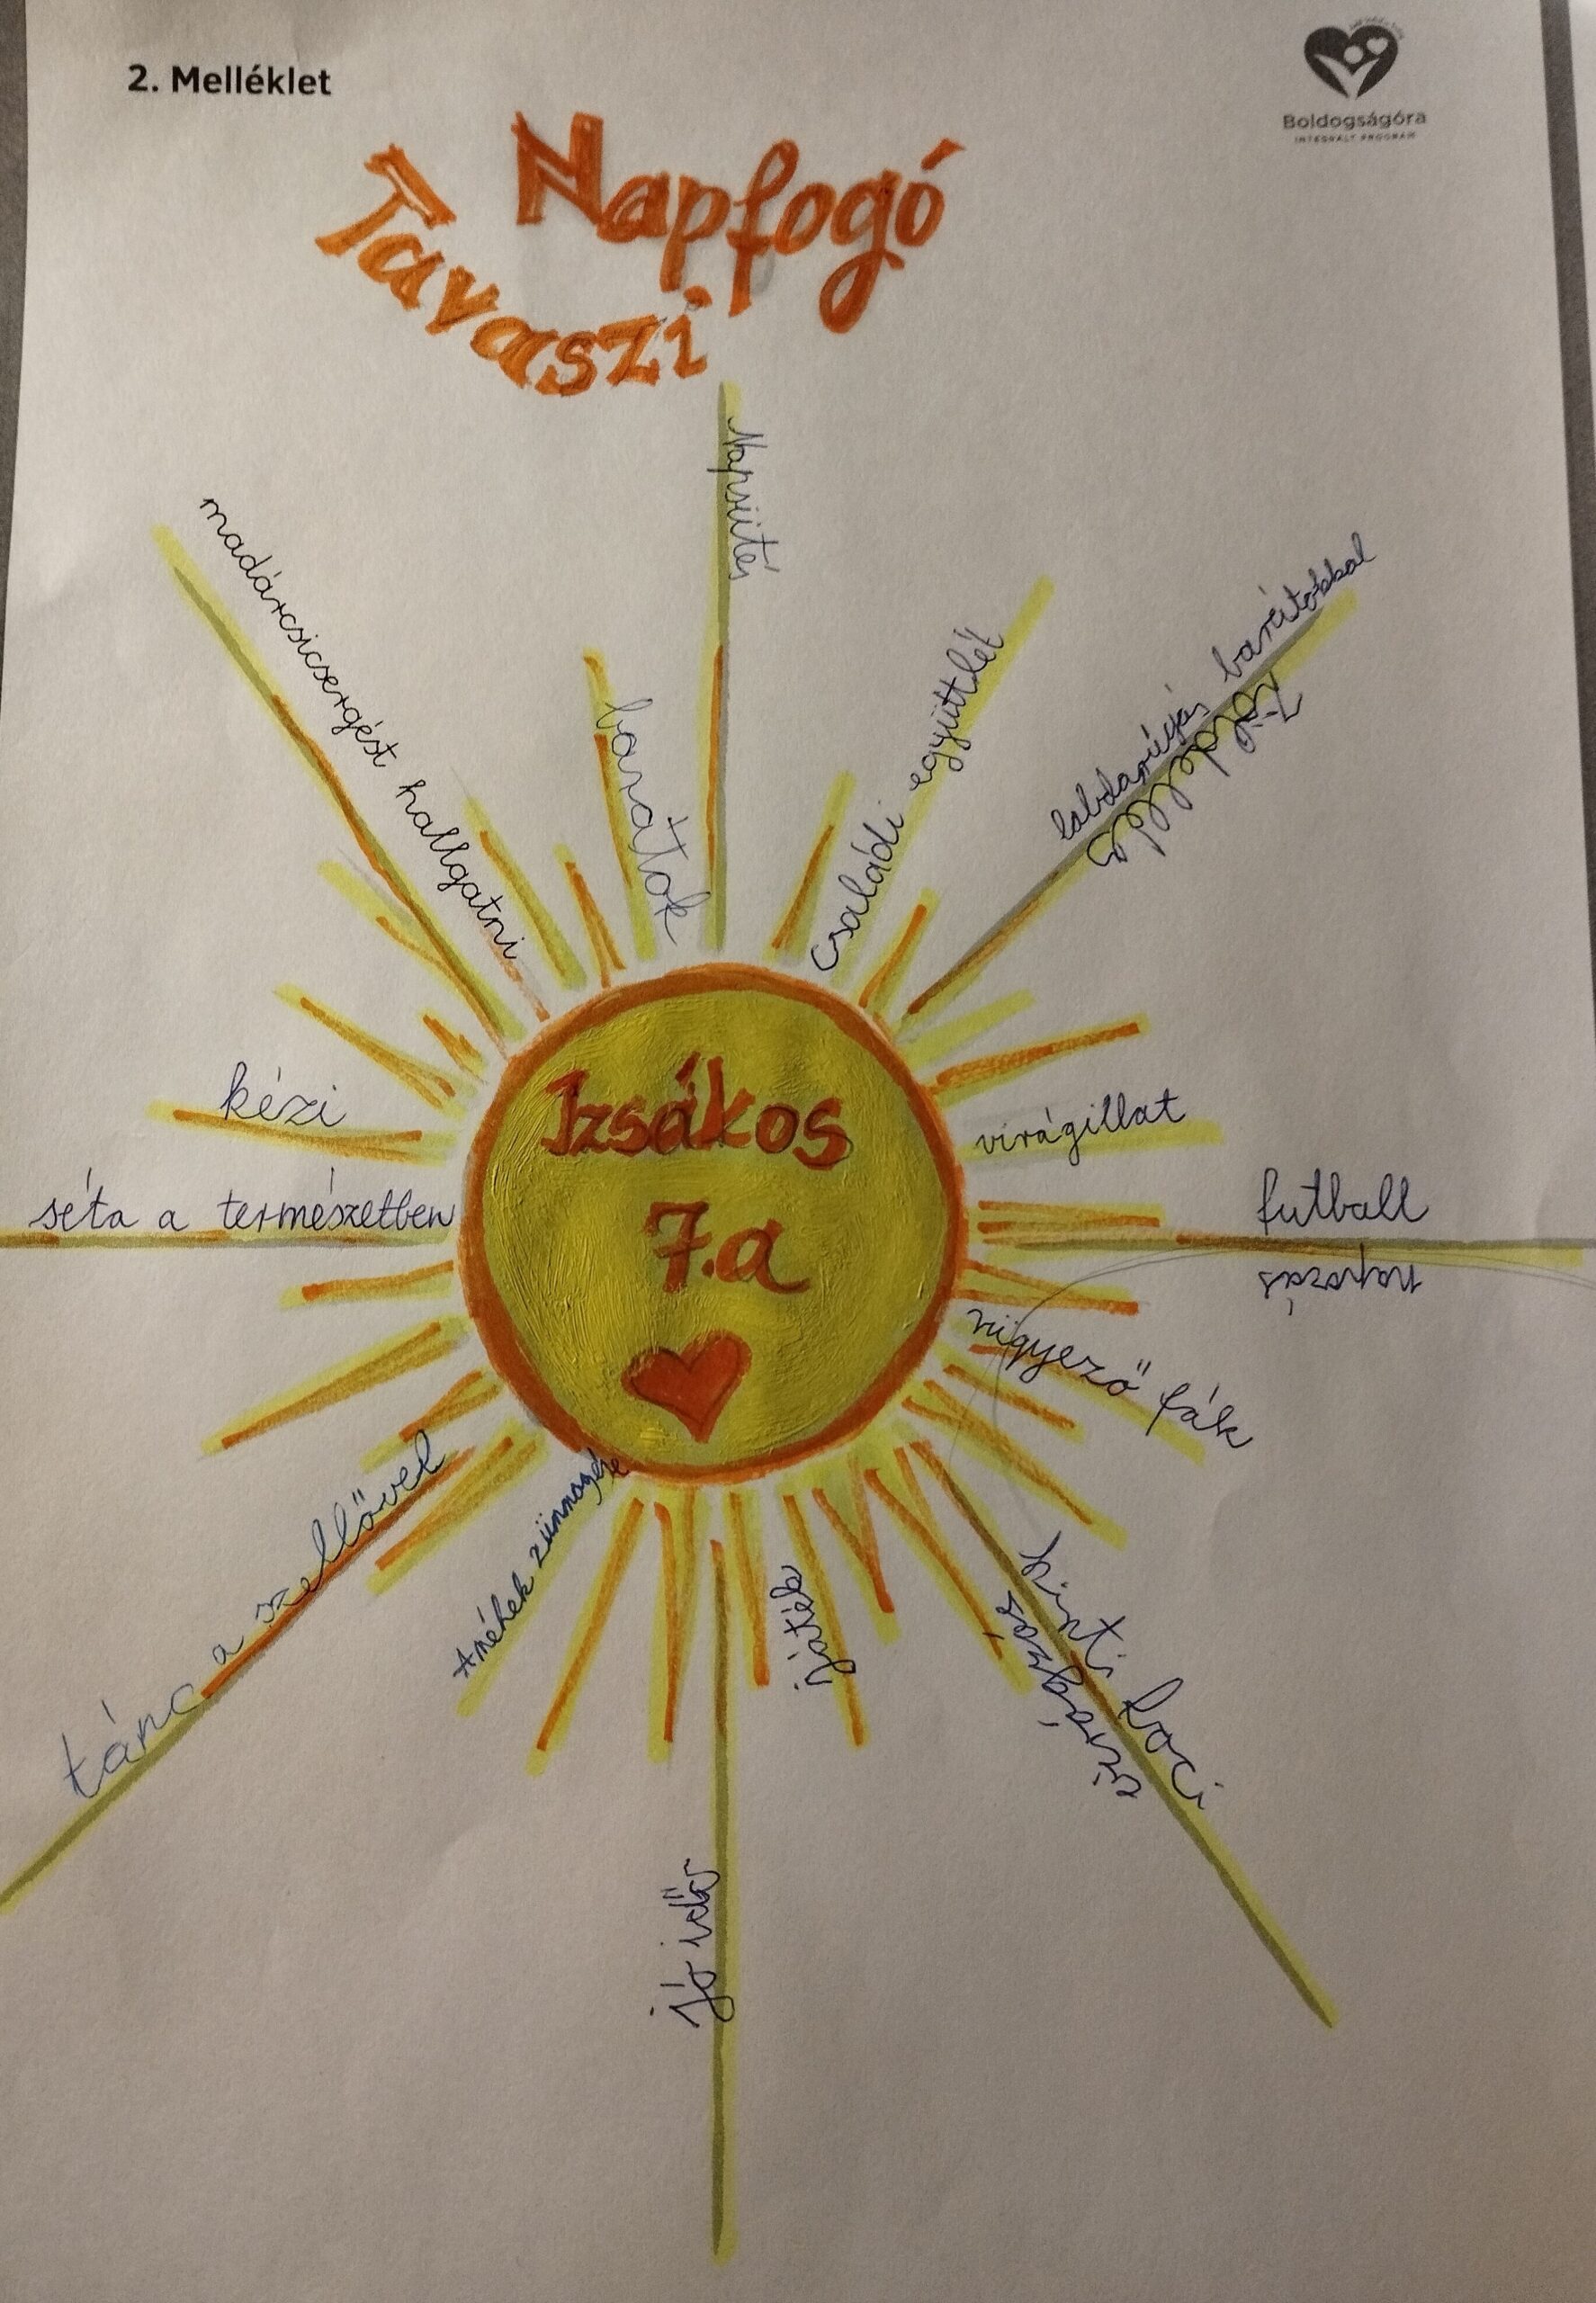 2. Melléklet
Boldogságóra
INTEGRÁLT PROGRAM
Tavaszi
Napfogó
Napsütés
madárcsicsergést hallgatni
barátok
Családi együttlét
labdarúgás barátokkal
Zöldellő
kézi
virágillat
séta a természetben
futball
napozás
rügyező fák
Izsákos
7.a
tánc a szellővel
A méhek zümmögése
játék
kinti foci
virágzás
jó idő